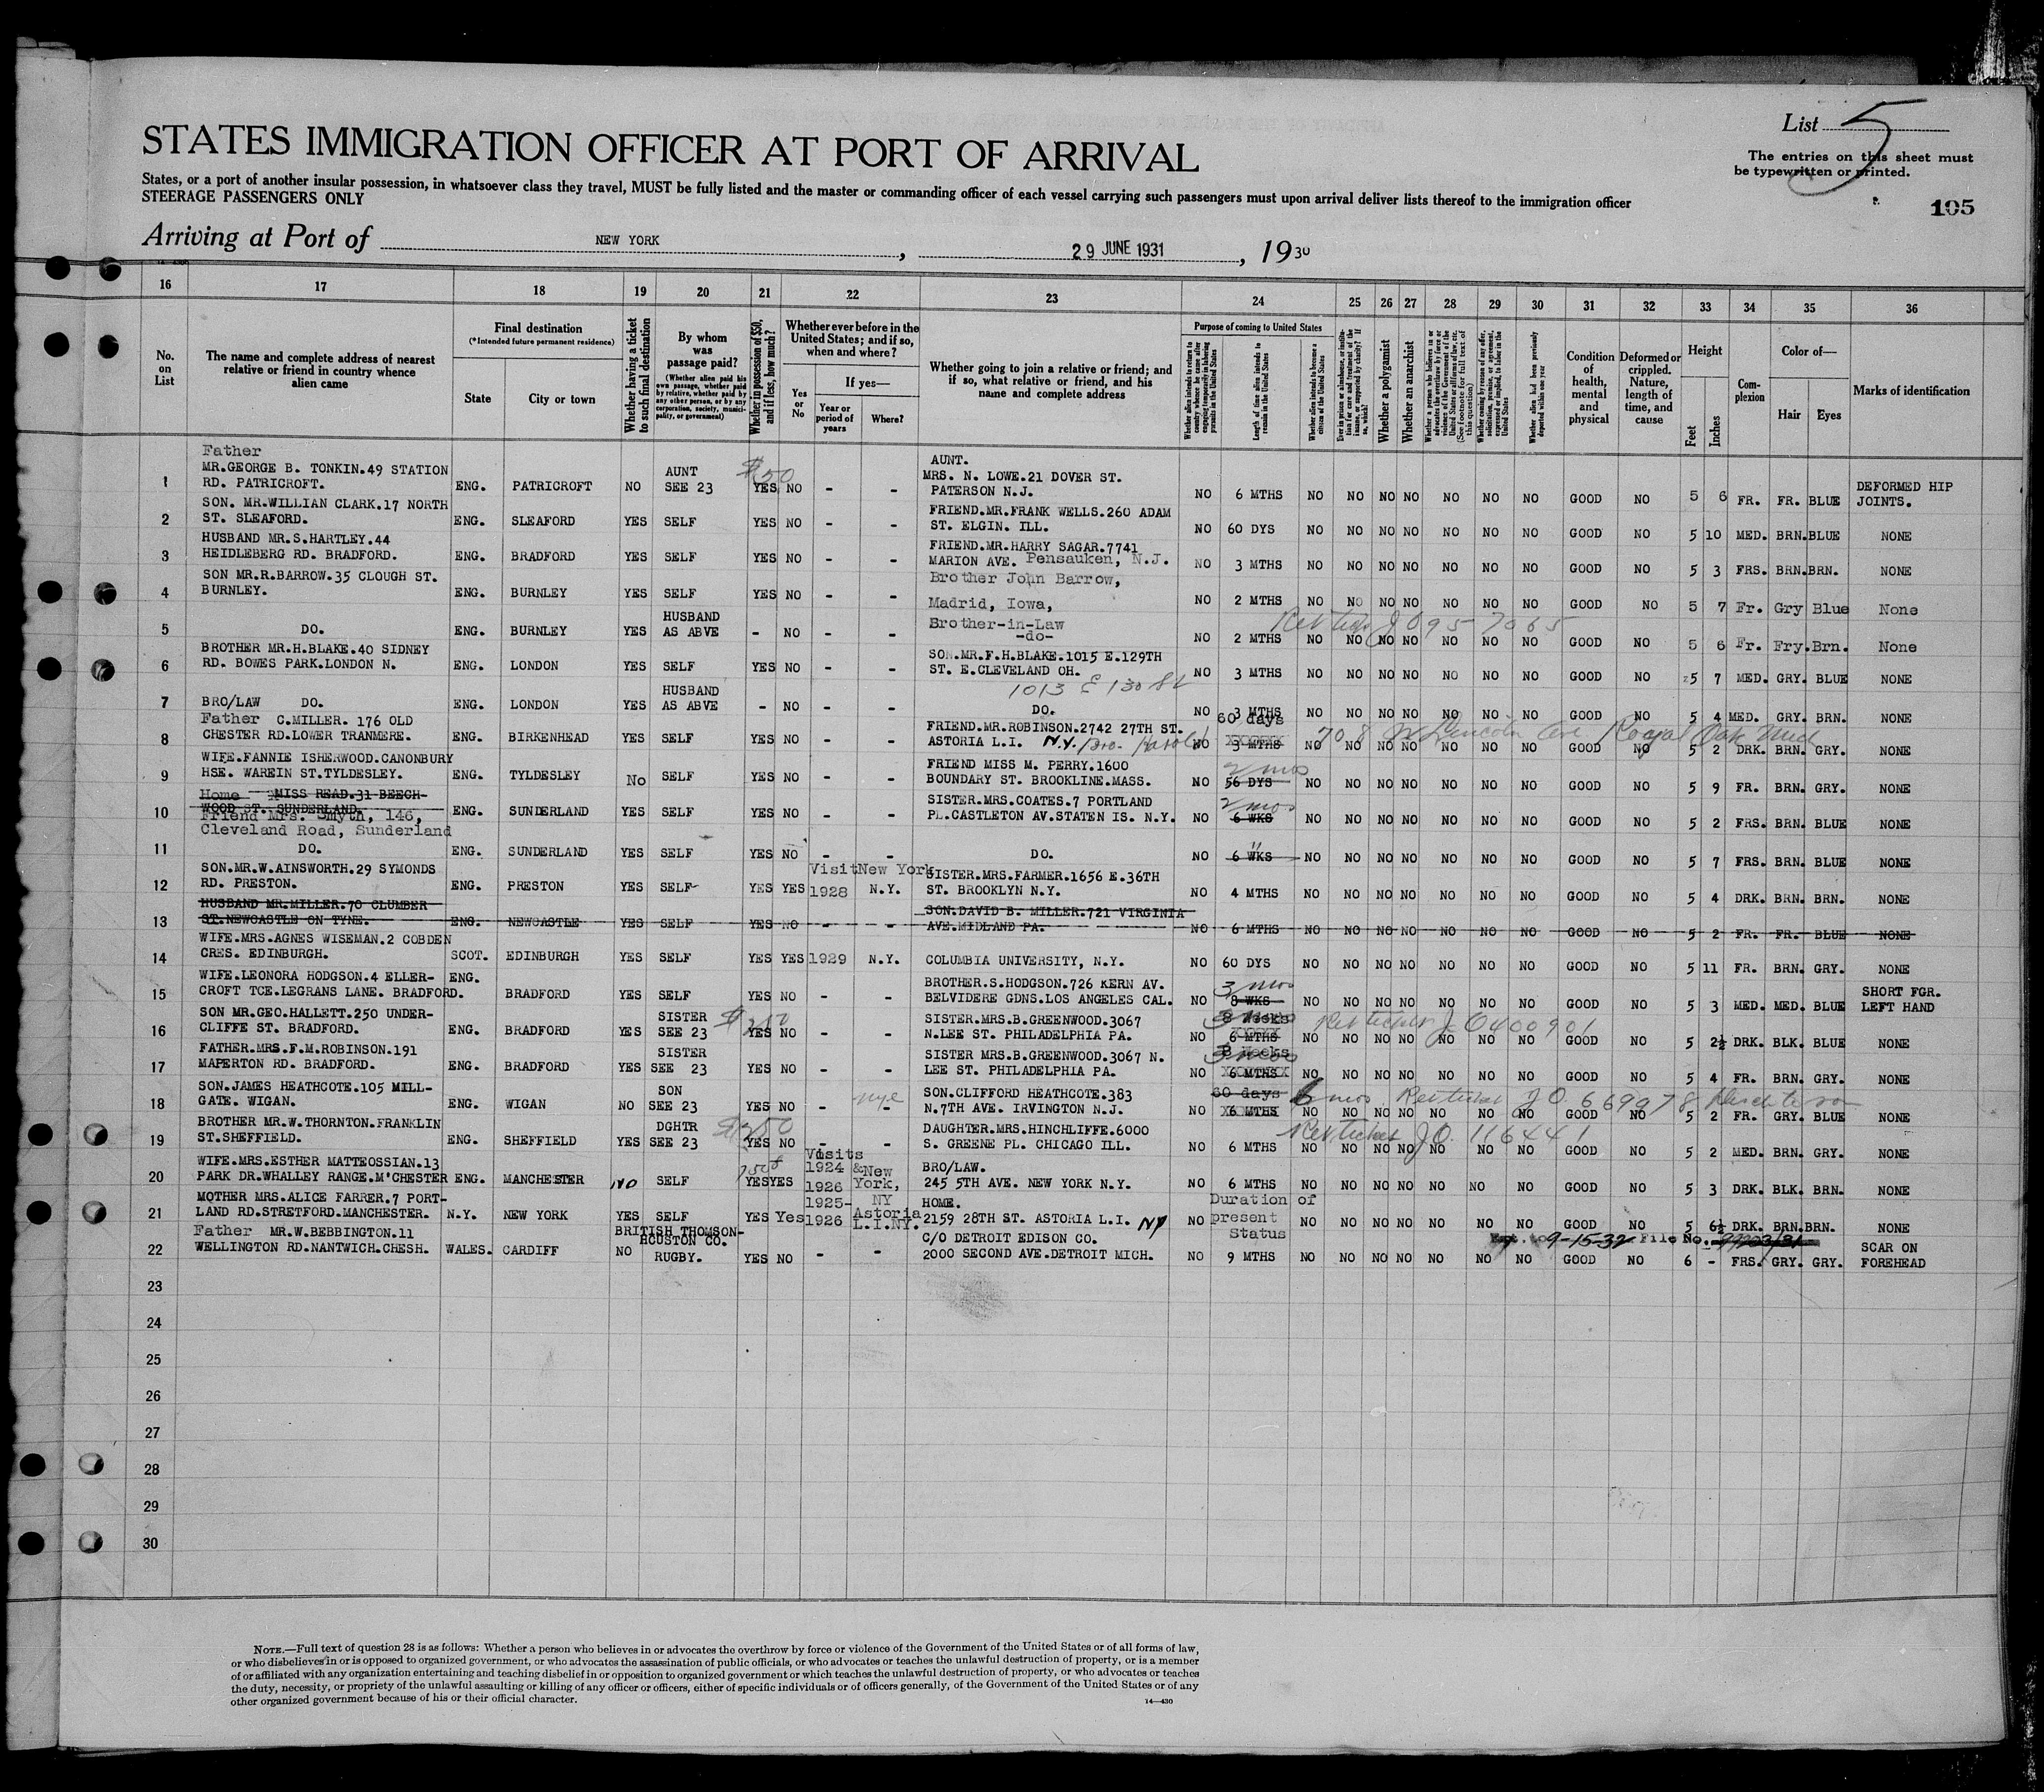 List 5
The entries on this sheet must
be typewritten or printed.
STATES IMMIGRATION OFFICER AT PORT OF ARRIVAL
States, or a port of another insular possession, in whatsoever class they travel, MUST be fully listed and the master or commanding officer of each vessel carrying such passengers must upon arrival deliver lists thereof to the immigration officer
STEERAGE PASSENGERS ONLY
105
Arriving at Port of NEW YORK, 29 JUNE 1931, 1930
16 17 18 19 20 21 22 23 24 25 26 27 28 29 30 31 32 33 34 35 36
No. on List
The name and complete address of nearest relative or friend in country whence alien came
Final destination
(*Intended future permanent residence)
State
City or town
Whether having a ticket to such final destination
By whom was passage paid?
(Whether alien paid his own passage, whether paid by relative, whether paid by any other person, or by any corporation, society, municipality, or government)
Whether in possession of $50, and if less, how much?
Whether ever before in the United States; and if so, when and where?
Yes or No
If yes—
Year or period of years
Where?
Whether going to join a relative or friend; and if so, what relative or friend, and his name and complete address
Purpose of coming to United States
Length of time alien intends to remain in the United States
Whether alien intends to become a citizen of the United States
Whether a polygamist
Whether an anarchist
Condition of health, mental and physical
Deformed or crippled. Nature, length of time, and cause
Height
Feet
Inches
Complexion
Color of—
Hair
Eyes
Marks of identification
Father AUNT $50 AUNT.
1 MR.GEORGE B. TONKIN.49 STATION RD. PATRICROFT. ENG. PATRICROFT NO SEE 23 YES NO - - MRS. N. LOWE.21 DOVER ST. PATERSON N.J. NO 6 MTHS NO NO NO NO NO NO NO GOOD NO 5 6 FR. FR. BLUE DEFORMED HIP JOINTS.
2 SON. MR.WILLIAN CLARK.17 NORTH ST. SLEAFORD. ENG. SLEAFORD YES SELF YES NO - - FRIEND.MR.FRANK WELLS.260 ADAM ST. ELGIN. ILL. NO 60 DYS NO NO NO NO NO NO NO GOOD NO 5 10 MED. BRN. BLUE NONE
3 HUSBAND MR.S.HARTLEY.44 HEIDLEBERG RD. BRADFORD. ENG. BRADFORD YES SELF YES NO - - FRIEND.MR.HARRY SAGAR.7741 MARION AVE. Pensauken, N.J. NO 3 MTHS NO NO NO NO NO NO NO GOOD NO 5 3 FRS. BRN. BRN. NONE
4 SON MR.R.BARROW.35 CLOUGH ST. BURNLEY. ENG. BURNLEY YES SELF YES NO - - Brother John Barrow, Madrid, Iowa, NO 2 MTHS NO NO NO NO NO NO NO GOOD NO 5 7 Fr. Gry Blue None
5 DO. ENG. BURNLEY YES HUSBAND AS ABVE - NO - - Brother-in-Law -do- NO 2 MTHS NO NO NO NO NO NO NO GOOD NO 5 6 Fr. Fry. Brn. None
6 BROTHER MR.H.BLAKE.40 SIDNEY RD. BOWES PARK.LONDON N. ENG. LONDON YES SELF YES NO - - SON.MR.F.H.BLAKE.1015 E.129TH ST. E.CLEVELAND OH. NO 3 MTHS NO NO NO NO NO NO NO GOOD NO 5 7 MED. GRY. BLUE NONE
1013 E 130 St
7 BRO/LAW DO. ENG. LONDON YES HUSBAND AS ABVE - NO - - DO. NO 3 MTHS NO NO NO NO NO NO NO GOOD NO 5 4 MED. GRY. BRN. NONE
8 Father C.MILLER. 176 OLD CHESTER RD.LOWER TRANMERE. ENG. BIRKENHEAD YES SELF YES NO - - FRIEND.MR.ROBINSON.2742 27TH ST. ASTORIA L.I. N.Y. Bro. Harold NO 60 days 3 MTHS NO NO NO NO NO NO NO GOOD NO 5 2 DRK. BRN. GRY. NONE
708 W Lincoln Ave Royal Oak Mich
9 WIFE.FANNIE ISHERWOOD.CANONBURY HSE. WAREIN ST.TYLDESLEY. ENG. TYLDESLEY No SELF YES NO - - FRIEND MISS M. PERRY.1600 BOUNDARY ST. BROOKLINE.MASS. NO 2 mos 56 DYS NO NO NO NO NO NO NO GOOD NO 5 9 FR. BRN. GRY. NONE
10 Home MISS READ.31 BEECHWOOD ST. SUNDERLAND. Friend Mrs. Smyth, 146, Cleveland Road, Sunderland ENG. SUNDERLAND YES SELF YES NO - - SISTER.MRS.COATES.7 PORTLAND PL.CASTLETON AV.STATEN IS. N.Y. NO 2 mos 6 WKS NO NO NO NO NO NO NO GOOD NO 5 2 FRS. BRN. BLUE NONE
11 DO. ENG. SUNDERLAND YES SELF YES NO - - DO. NO " 6 WKS NO NO NO NO NO NO NO GOOD NO 5 7 FRS. BRN. BLUE NONE
12 SON.MR.W.AINSWORTH.29 SYMONDS RD. PRESTON. ENG. PRESTON YES SELF YES YES Visit 1928 New York N.Y. SISTER.MRS.FARMER.1656 E.36TH ST. BROOKLYN N.Y. NO 4 MTHS NO NO NO NO NO NO NO GOOD NO 5 4 DRK. BRN. BRN. NONE
13 HUSBAND MR.MILLER.70 CLUMBER ST.NEWCASTLE ON TYNE. ENG. NEWCASTLE YES SELF YES NO - - SON.DAVID B. MILLER.721 VIRGINIA AVE.MIDLAND PA. NO 6 MTHS NO NO NO NO NO NO NO GOOD NO 5 2 FR. FR. BLUE NONE
14 WIFE.MRS.AGNES WISEMAN.2 COBDEN CRES. EDINBURGH. SCOT. EDINBURGH YES SELF YES YES 1929 N.Y. COLUMBIA UNIVERSITY, N.Y. NO 60 DYS NO NO NO NO NO NO NO GOOD NO 5 11 FR. BRN. GRY. NONE
15 WIFE.LEONORA HODGSON.4 ELLERCROFT TCE.LEGRANS LANE. BRADFORD. ENG. BRADFORD YES SELF YES NO - - BROTHER.S.HODGSON.726 KERN AV. BELVIDERE GDNS.LOS ANGELES CAL. NO 3 mos 8 WKS NO NO NO NO NO NO NO GOOD NO 5 3 MED. MED. BLUE SHORT FGR. LEFT HAND
16 SON MR.GEO.HALLETT.250 UNDERCLIFFE ST. BRADFORD. ENG. BRADFORD YES SISTER SEE 23 YES NO - - SISTER.MRS.B.GREENWOOD.3067 N.LEE ST. PHILADELPHIA PA. NO 8 Weeks 6 MTHS NO NO NO NO NO NO NO GOOD NO 5 2½ DRK. BLK. BLUE NONE
17 FATHER.MRS.F.M.ROBINSON.191 MAPERTON RD. BRADFORD. ENG. BRADFORD YES SISTER SEE 23 YES NO - - SISTER MRS.B.GREENWOOD.3067 N. LEE ST. PHILADELPHIA PA. NO 8 Weeks 6 MTHS NO NO NO NO NO NO NO GOOD NO 5 4 FR. BRN. GRY. NONE
18 SON.JAMES HEATHCOTE.105 MILLGATE. WIGAN. ENG. WIGAN NO SON SEE 23 YES NO - - SON.CLIFFORD HEATHCOTE.383 N.7TH AVE. IRVINGTON N.J. NO 60 days 6 MTHS 6 mos NO NO NO NO NO NO NO GOOD NO 5 2 FR. GRY. BLUE NONE
19 BROTHER MR.W.THORNTON.FRANKLIN ST.SHEFFIELD. ENG. SHEFFIELD YES DGHTR SEE 23 YES NO - - DAUGHTER.MRS.HINCHLIFFE.6000 S. GREENE PL. CHICAGO ILL. NO 6 MTHS NO NO NO NO NO NO NO GOOD NO 5 2 MED. BRN. GRY. NONE
20 WIFE.MRS.ESTHER MATTEOSSIAN.13 PARK DR.WHALLEY RANGE.M'CHESTER ENG. MANCHESTER NO SELF YES YES Visits 1924 & 1926 New York, NY BRO/LAW. 245 5TH AVE. NEW YORK N.Y. NO 6 MTHS NO NO NO NO NO NO NO GOOD NO 5 3 DRK. BLK. BRN. NONE
21 MOTHER MRS.ALICE FARRER.7 PORTLAND RD.STRETFORD.MANCHESTER. N.Y. NEW YORK YES SELF YES Yes 1925-1926 Astoria L.I.NY. HOME. 2159 28TH ST. ASTORIA L.I. NY NO Duration of present Status NO NO NO NO NO NO NO GOOD NO 5 6½ DRK. BRN. BRN. NONE
22 Father MR.W.BEBBINGTON.11 WELLINGTON RD.NANTWICH.CHESH. WALES. CARDIFF NO BRITISH THOMSON-HOUSTON CO. RUGBY. YES NO - - C/O DETROIT EDISON CO. 2000 SECOND AVE.DETROIT MICH. NO 9 MTHS NO NO NO NO NO NO NO GOOD NO 6 - FRS. GRY. GRY. SCAR ON FOREHEAD
Ext. to 9-15-32 File No.
23
24
25
26
27
28
29
30
NOTE.—Full text of question 28 is as follows: Whether a person who believes in or advocates the overthrow by force or violence of the Government of the United States or of all forms of law,
or who disbelieves in or is opposed to organized government, or who advocates the assassination of public officials, or who advocates or teaches the unlawful destruction of property, or is a member
of or affiliated with any organization entertaining and teaching disbelief in or opposition to organized government or which teaches the unlawful destruction of property, or who advocates or teaches
the duty, necessity, or propriety of the unlawful assaulting or killing of any officer or officers, either of specific individuals or of officers generally, of the Government of the United States or of any
other organized government because of his or their official character.
14—430